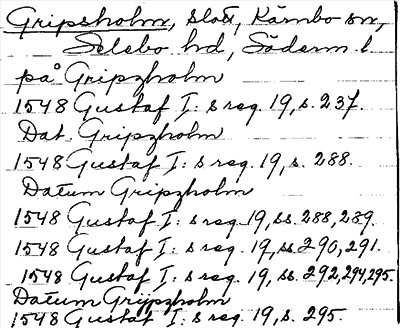 Gripsholm, slott, Kärnbo sn,
Selebo hd, Söderm. l.
på Gripzholm
1548 Gustaf I:s reg. 19, s. 237.
Dat. Gripzholm
1548 Gustaf I:s reg. 19, s. 288.
Datum Gripzholm
1548 Gustaf I:s reg. 19, ss. 288, 289.
1548 Gustaf I:s reg. 19, ss. 290, 291.
1548 Gustaf I:s reg. 19, ss. 292, 294, 295.
Datum Grijpzholm
1548 Gustaf I:s reg. 19, s. 295.